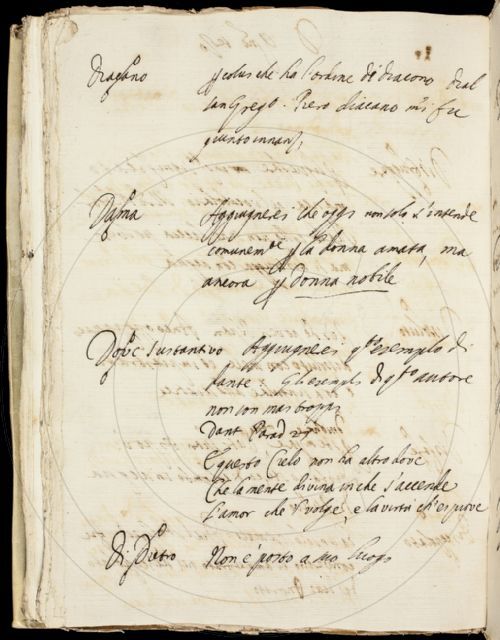 Diacano p colui che ha l'ordine di diacono Dial
San Greg.o Piero diacano mi fu
quanto innanzi
Dama Aggiugnerei che oggi non solo s'intende
comunem.te p la donna amata, ma
ancora p donna nobile
Dove sustantivo Aggiugnerei q.to esempio di
Dante gli esempli di q.to autore
non son mai troppi
Dant Parad 27
E questo Cielo non ha altro dove
Che la mente divina in che s'accende
L'amor che 'l volge, e la virtù ch'ei piove
Di Dietro Non è posto a suo luogo